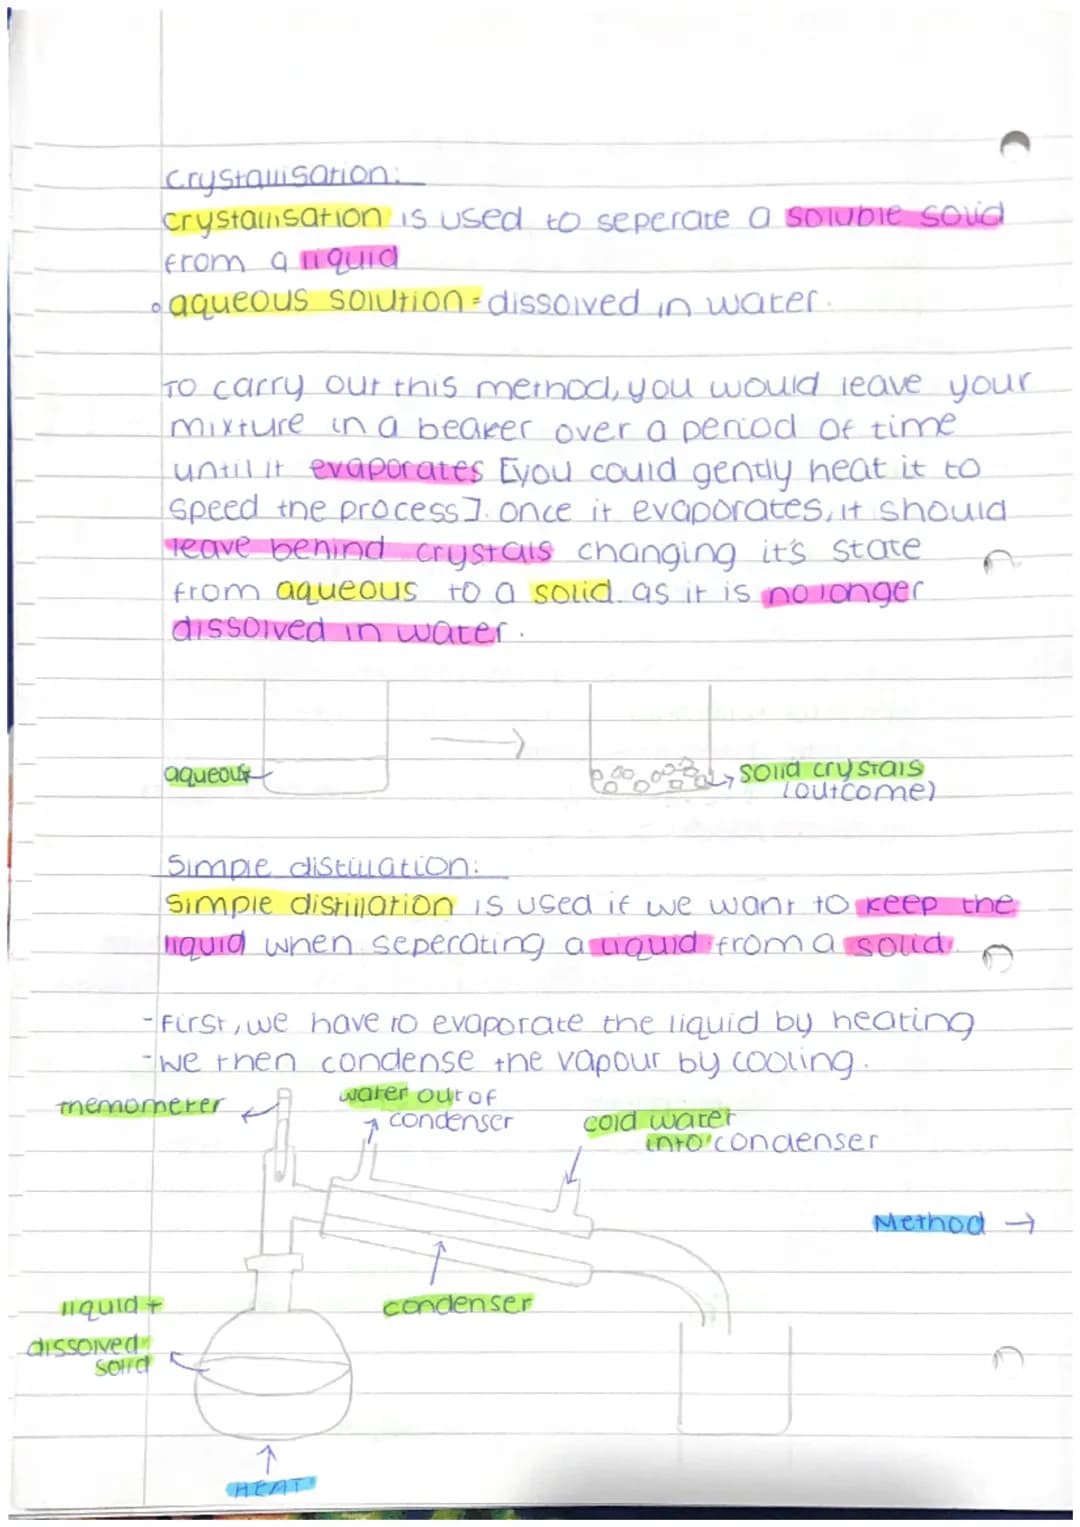 Crystallisation:
Crystallisation is used to seperate a soluble solid
from a liquid
aqueous solution = dissolved in water.
To carry out this method, you would leave your
mixture in a beaker over a period of time
until it evaporates [you could gently heat it to
speed the process]. once it evaporates, it should
leave behind crystals changing it's state
from aqueous to a solid. as it is no longer
dissolved in water.
aqueous
solid crystals
(outcome)
Simple distillation:
Simple distillation is used if we want to keep the
liquid when seperating a liquid from a solid.
- First, we have to evaporate the liquid by heating
- We then condense the vapour by cooling.
themometer
water out of
condenser
cold water
into condenser
Method →
condenser
liquid +
dissolved
solid
HEAT